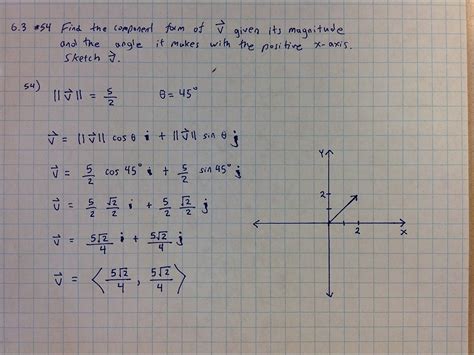 6.3 #54 Find the component form of v⃗ given its magnitude
and the angle it makes with the positive x-axis.
Sketch v⃗.
54) ||v⃗|| = 5/2 θ = 45°
v⃗ = ||v⃗|| cos θ i + ||v⃗|| sin θ j
v⃗ = 5/2 cos 45° i + 5/2 sin 45° j
v⃗ = 5/2 √2/2 i + 5/2 √2/2 j
v⃗ = 5√2/4 i + 5√2/4 j
v⃗ = ⟨5√2/4, 5√2/4⟩
Y
2
2
X